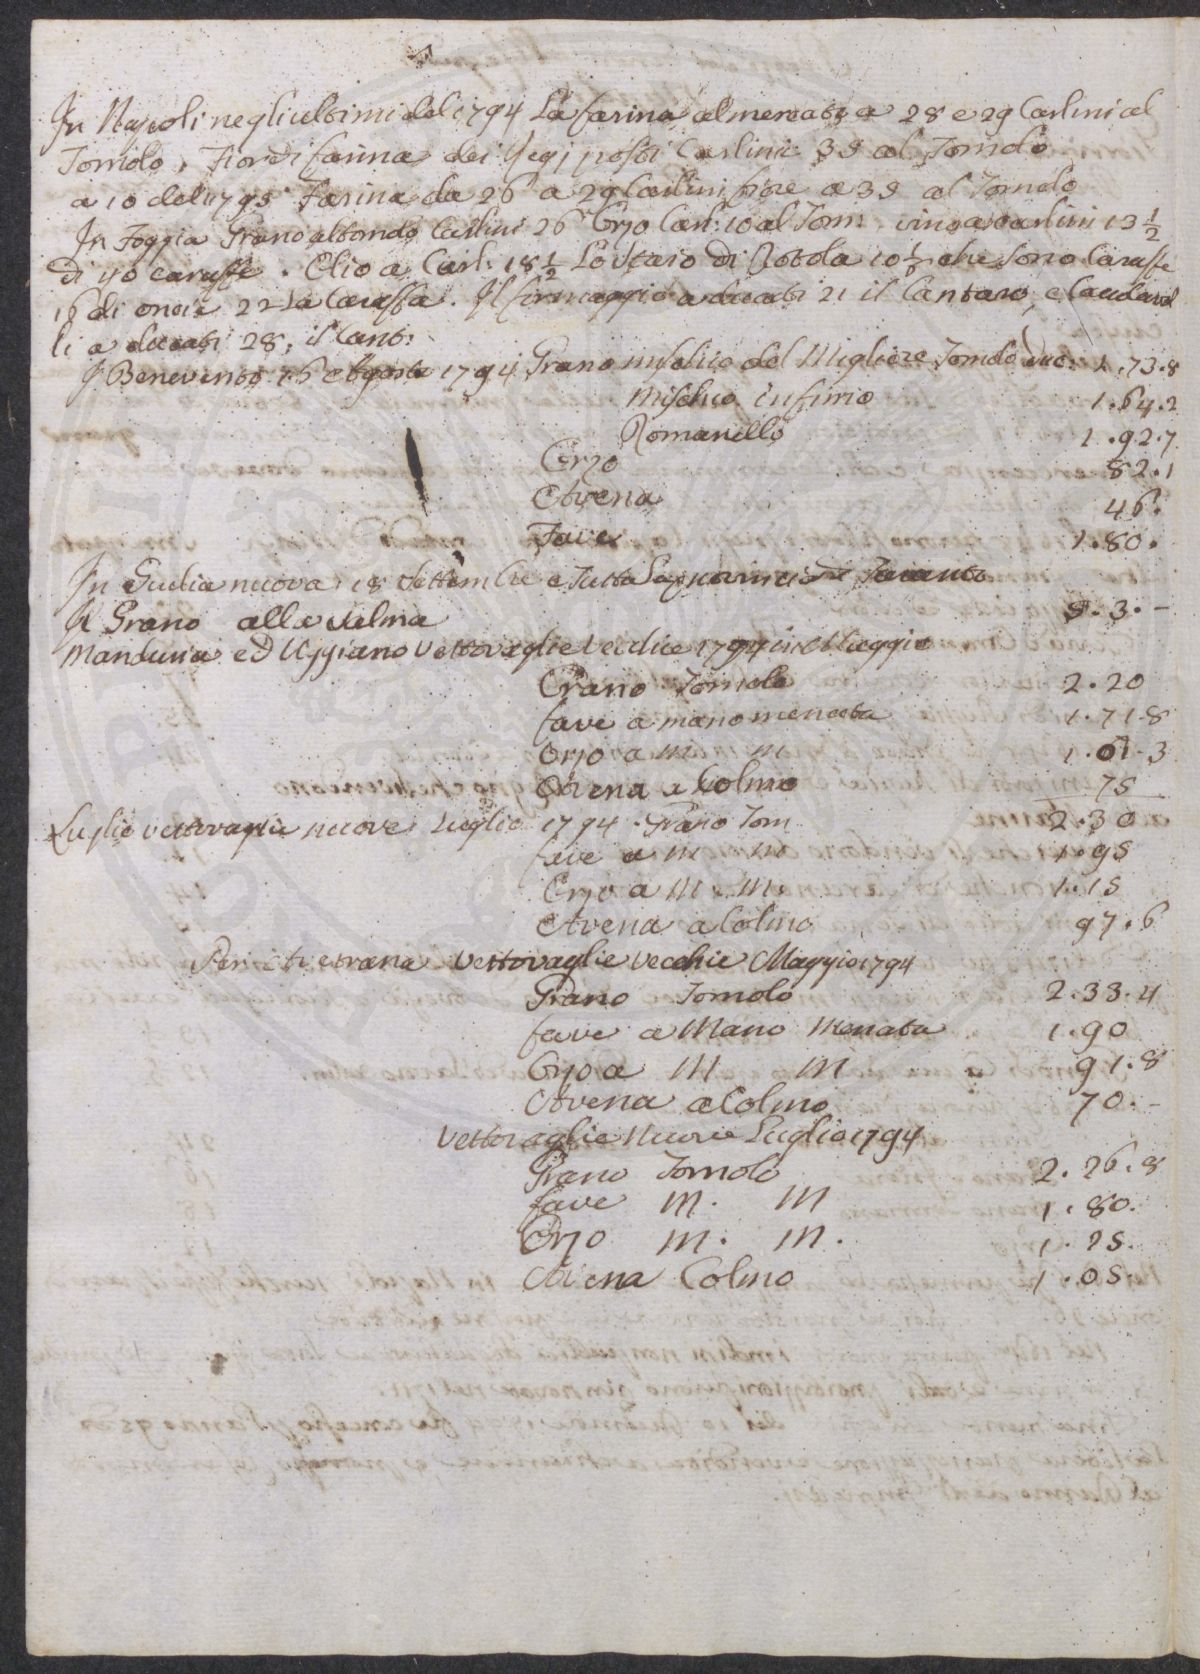 In Napoli negli ultimi del 1794 La farina al mercato a 28 e 29 Carlini al
Tomolo. Fior di farina dei posti Carlini 35 al Tomolo
a 10 del 1795 Farina da 26 a 29 Carlini fiore a 35 al Tomolo
In Foggia Grano al tomolo Carlini 26 Orzo Carl: 10 al Tom: vino a carlini 13 1/2
di 40 caraffe. Olio a Carl: 18 1/2 Lo Staro di Rotola 10 1/3 che sono Caraffe
16 di oncie 22 la Caraffa. Il formaggio a ducati 21 il Cantaro, e
li a ducati 28, il Cant:
In Benevento 16 Agosto 1794 Grano mischio del Migliore Tomolo duc: 1.73.8
Mischio infimo 1.64.2
Romanello 1.92.7
Orzo 82.1
Avena 46.
Fave 1.80.
In Giulia nuova 18 Settembre e Tutta la provincia di
Il Grano alla salma 5.3.-
Manduria ed Uggiano Vettovaglie Vecchie 1794 in Maggio
Grano Tomolo 2.20
fave a mano menata 1.71.8
Orzo a m m 1.01.3
Avena a Colmo 75
Luglio vettovaglie nuove Luglio 1794. Grano Tom 2.30
fave a m m 1.95
Orzo a M. M. 1.15
Avena a Colmo 97.6
Per Avetrana Vettovaglie Vecchie Maggio 1794
Grano Tomolo 2.33.4
fave a Mano Menata 1.90
Orzo a M M 91.8
Avena a Colmo 70.-
Vettovaglie Nuove Luglio 1794
Grano Tomolo 2.26.8
fave m. m 1.80.
Orzo m. m. 1.25.
Avena Colmo 1.05